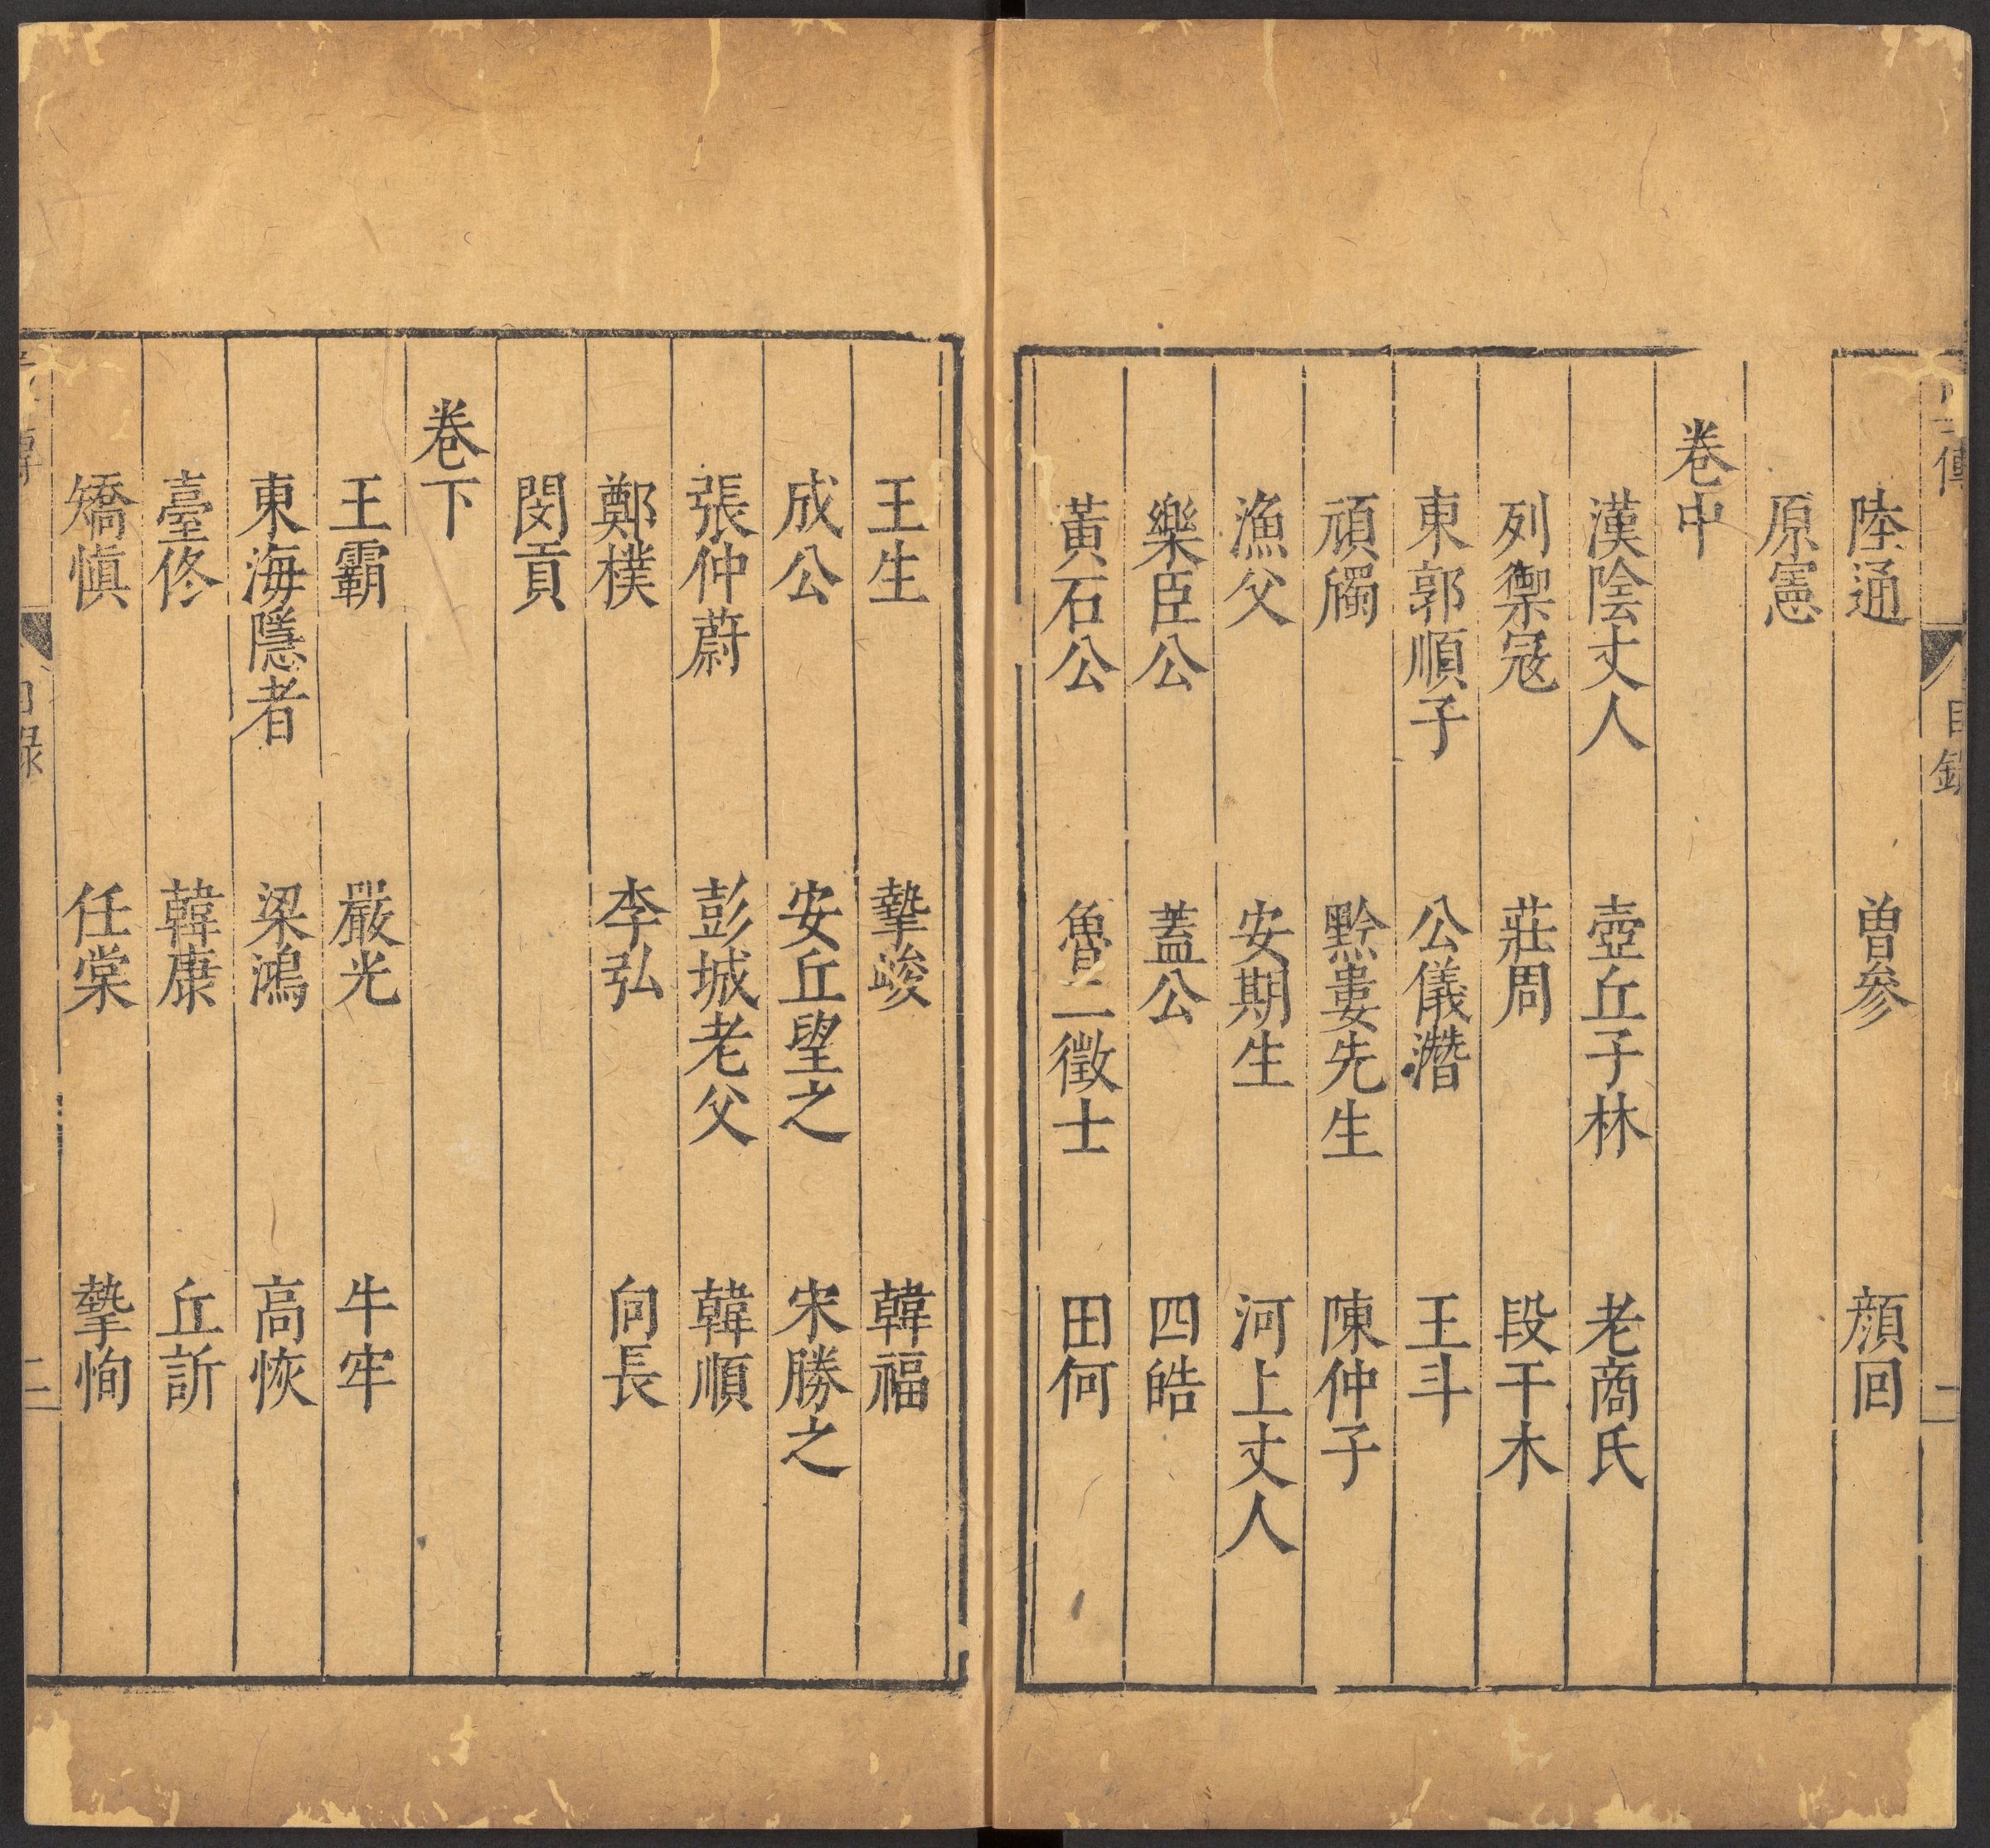 傳 目錄 二
陸通 曾參 顔回
原憲
卷中
漢陰丈人 壺丘子林 老商氏
列禦冦 莊周 段干木
東郭順子 公儀潛 王斗
頑斶 黔婁先生 陳仲子
漁父 安期生 河上丈人
樂臣公 蓋公 四皓
黃石公 魯二徵士 田何
王生 摯峻 韓福
成公 安丘望之 宋勝之
張仲蔚 彭城老父 韓順
鄭樸 李弘 向長
閔貢
卷下
王霸 嚴光 牛牢
東海隱者 梁鴻 高恢
臺佟 韓康 丘訢
矯慎 任棠 摯恂
傳 目錄 二